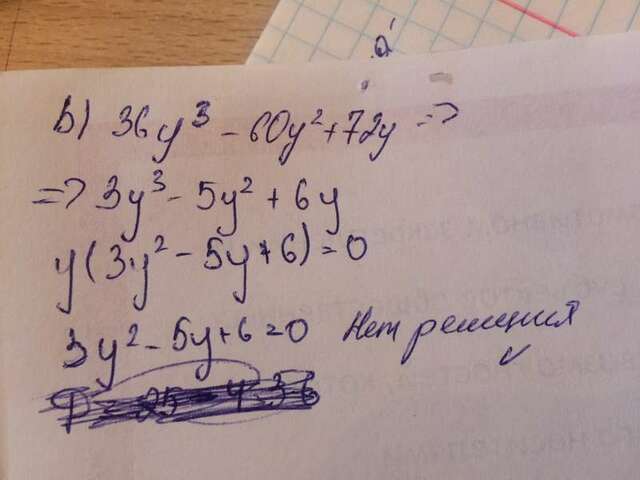 b) 36y³ - 60y² + 72y =>
=> 3y³ - 5y² + 6y
y(3y² - 5y + 6) = 0
3y² - 5y + 6 = 0 Нет решения